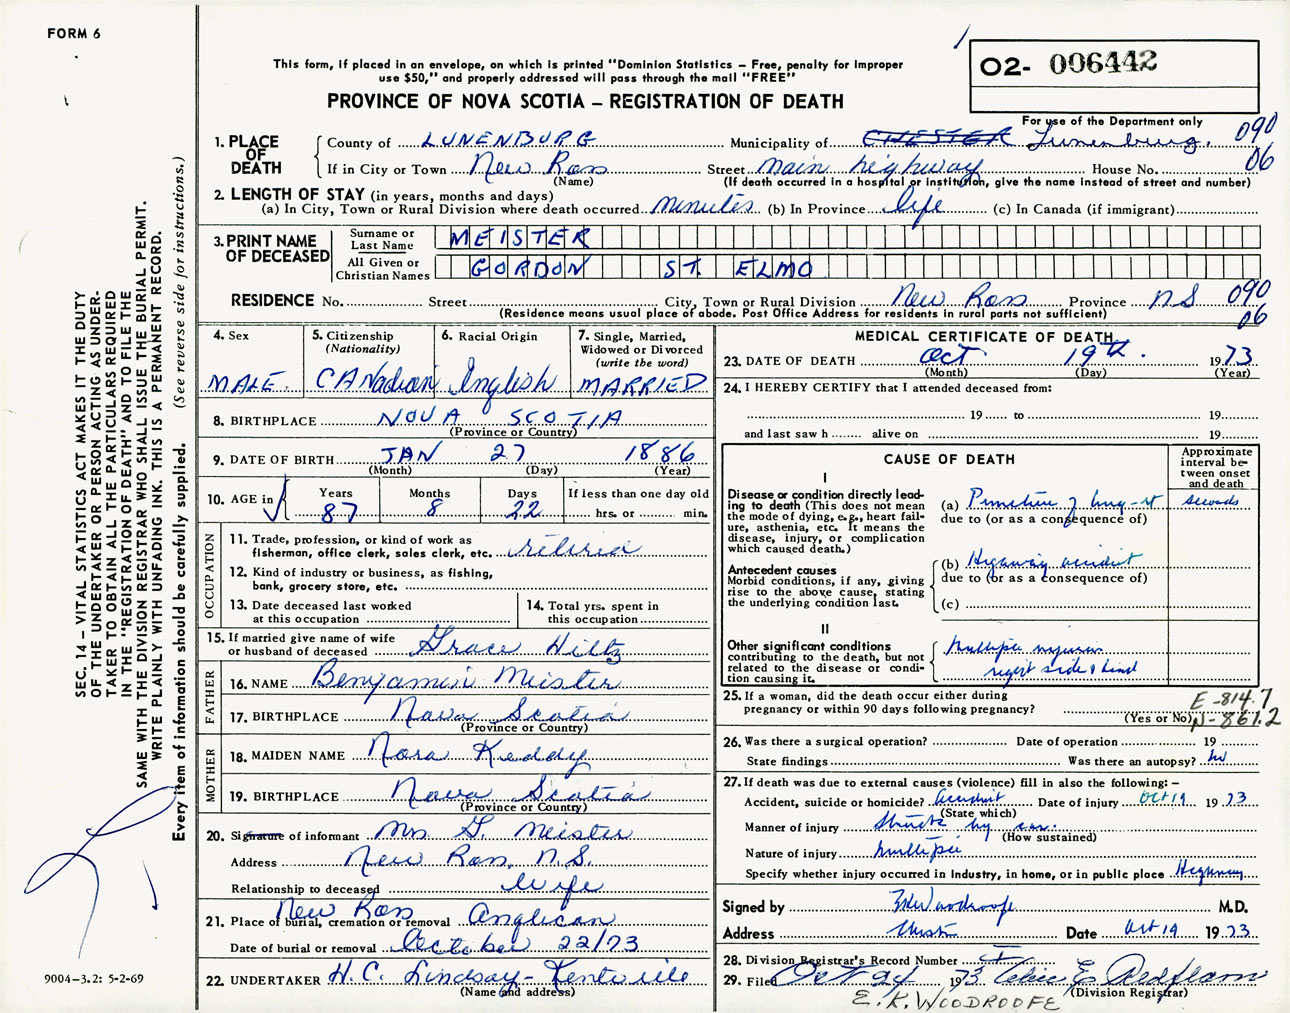 FORM 6
This form, if placed in an envelope, on which is printed "Dominion Statistics – Free, penalty for improper
use $50," and properly addressed will pass through the mail "FREE"
O2- 006442
PROVINCE OF NOVA SCOTIA – REGISTRATION OF DEATH
For use of the Department only
1. PLACE OF DEATH
County of LUNENBURG Municipality of CHESTER Lunenburg. 090
If in City or Town New Ross Street main highway House No. 06
(Name) (If death occurred in a hospital or institution, give the name instead of street and number)
2. LENGTH OF STAY (in years, months and days)
(a) In City, Town or Rural Division where death occurred minutes (b) In Province life (c) In Canada (if immigrant)
3. PRINT NAME OF DECEASED
Surname or Last Name MEISTER
All Given or Christian Names GORDON ST. ELMO
RESIDENCE No. Street City, Town or Rural Division New Ross Province NS 090
(Residence means usual place of abode. Post Office Address for residents in rural parts not sufficient) 06
4. Sex
MALE
5. Citizenship
(Nationality)
CANadian
6. Racial Origin
English
7. Single, Married,
Widowed or Divorced
(write the word)
MARRIED
8. BIRTHPLACE NOVA SCOTIA
(Province or Country)
9. DATE OF BIRTH JAN 27 1886
(Month) (Day) (Year)
10. AGE in
Years Months Days If less than one day old
87 8 22 hrs. or min.
OCCUPATION
11. Trade, profession, or kind of work as
fisherman, office clerk, sales clerk, etc. retired
12. Kind of industry or business, as fishing,
bank, grocery store, etc.
13. Date deceased last worked
at this occupation
14. Total yrs. spent in
this occupation
15. If married give name of wife
or husband of deceased Grace Hiltz
FATHER
16. NAME Benjamin Meister
17. BIRTHPLACE Nova Scotia
(Province or Country)
MOTHER
18. MAIDEN NAME Nora Keddy
19. BIRTHPLACE Nova Scotia
(Province or Country)
20. Signature of informant Mrs G. Meister
Address New Ross, N.S.
Relationship to deceased Wife
New Ross
21. Place of burial, cremation or removal Anglican
Date of burial or removal October 22/73
22. UNDERTAKER H.C. Lindsay - Kentville
(Name and address)
MEDICAL CERTIFICATE OF DEATH
23. DATE OF DEATH Oct 19th. 1973
(Month) (Day) (Year)
24. I HEREBY CERTIFY that I attended deceased from:
19 to 19
and last saw h alive on 19
CAUSE OF DEATH
Approximate
interval be-
tween onset
and death
I
Disease or condition directly lead-
ing to death (This does not mean
the mode of dying, e.g., heart fail-
ure, asthenia, etc. It means the
disease, injury, or complication
which caused death.)
(a) Puncture of lung - rt seconds
due to (or as a consequence of)
Antecedent causes
Morbid conditions, if any, giving
rise to the above cause, stating
the underlying condition last.
(b) Highway accident
due to (or as a consequence of)
(c)
II
Other significant conditions
contributing to the death, but not
related to the disease or condi-
tion causing it.
Multiple injuries
right side &
25. If a woman, did the death occur either during
pregnancy or within 90 days following pregnancy?
(Yes or No)
E-814.7
N-861.2
26. Was there a surgical operation? Date of operation 19
State findings Was there an autopsy? no
27. If death was due to external causes (violence) fill in also the following: –
Accident, suicide or homicide? Accident Date of injury Oct 19 1973
(State which)
Manner of injury Struck by car.
(How sustained)
Nature of injury multiple
Specify whether injury occurred in industry, in home, or in public place Highway
Signed by EKWoodroofe M.D.
Address Date Oct 19 1973
28. Division Registrar's Record Number
29. Filed Oct 24 1973
(Division Registrar)
E. K. WOODROOFE
SEC. 14 – VITAL STATISTICS ACT MAKES IT THE DUTY
OF THE UNDERTAKER OR PERSON ACTING AS UNDER-
TAKER TO OBTAIN ALL THE PARTICULARS REQUIRED
IN THE "REGISTRATION OF DEATH" AND TO FILE THE
SAME WITH THE DIVISION REGISTRAR WHO SHALL ISSUE THE BURIAL PERMIT.
WRITE PLAINLY WITH UNFADING INK. THIS IS A PERMANENT RECORD.
Every item of information should be carefully supplied. (See reverse side for instructions.)
9004–3.2: 5-2-69